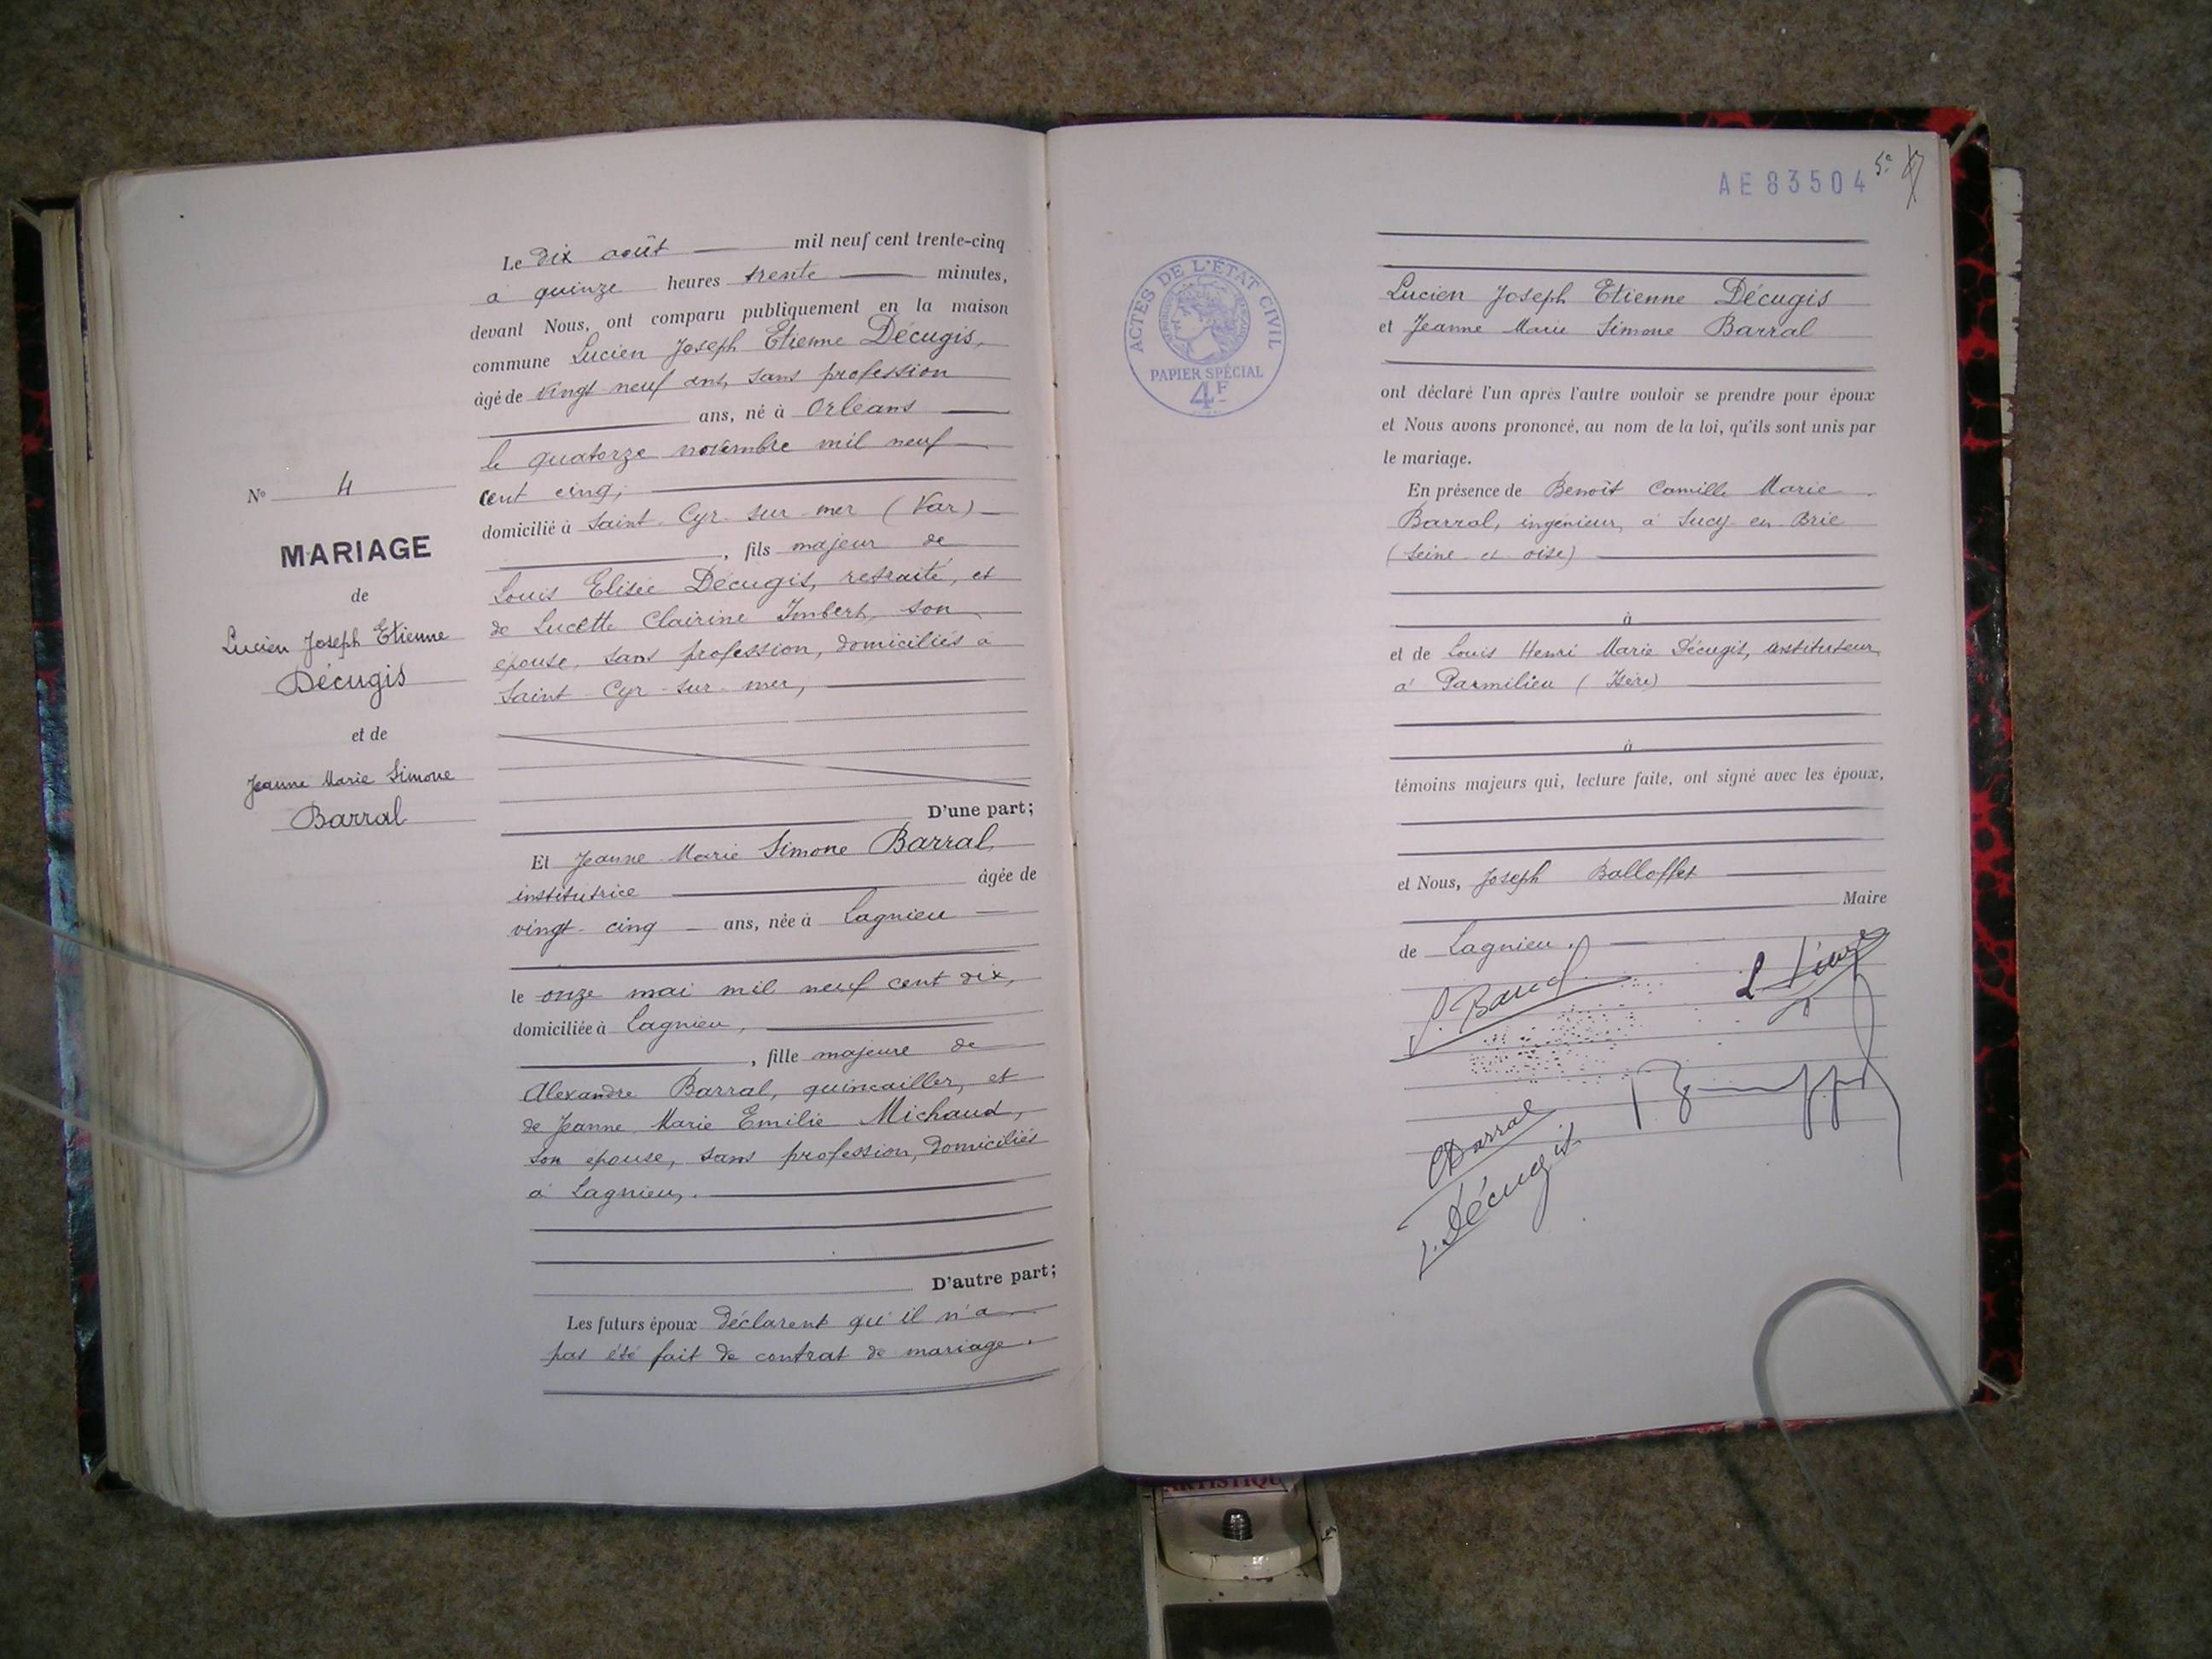 N° 4
MARIAGE
de
Lucien Joseph Etienne
Décugis
et de
Jeanne Marie Simone
Barral
Le dix août mil neuf cent trente-cinq
à quinze heures trente minutes,
devant Nous, ont comparu publiquement en la maison
commune Lucien Joseph Etienne Décugis,
âgé de vingt-neuf ans, sans profession
ans, né à Orléans
le quatorze novembre mil neuf
cent cinq,
domicilié à Saint-Cyr-sur-mer (Var)
, fils majeur de
Louis Elisée Décugis, retraité, et
de Lucette Clairine Imbert, son
épouse, sans profession, domiciliés à
Saint-Cyr-sur-mer,
D'une part;
Et Jeanne Marie Simone Barral,
institutrice âgée de
vingt-cinq ans, née à Lagnieu
le onze mai mil neuf cent dix,
domiciliée à Lagnieu,
, fille majeure de
Alexandre Barral, quincailler, et
de Jeanne Marie Emilie Michaud,
son épouse, sans profession, domiciliés
à Lagnieu,.
D'autre part;
Les futurs époux déclarent qu'il n'a
pas été fait de contrat de mariage.
AE 83504
5e
ACTES DE L'ÉTAT CIVIL
PAPIER SPÉCIAL
4F
Lucien Joseph Etienne Décugis
et Jeanne Marie Simone Barral
ont déclaré l'un après l'autre vouloir se prendre pour époux
et Nous avons prononcé, au nom de la loi, qu'ils sont unis par
le mariage.
En présence de Benoît Camille Marie
Barral, ingénieur, à Sucy-en-Brie
(Seine-et-oise)
à
et de Louis Henri Marie Décugis, instituteur
à Parmilieu (Isère)
à
témoins majeurs qui, lecture faite, ont signé avec les époux,
et Nous, Joseph Balloffet
Maire
de Lagnieu.
CBarral
L. Décugis
ARTISTIQU